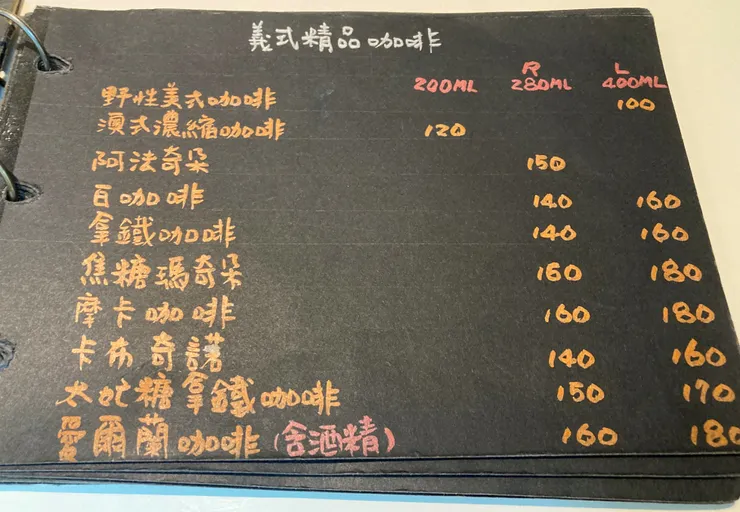 義式精品咖啡
R L
200ML 280ML 400ML
野性美式咖啡 100
澳式濃縮咖啡 120
阿法奇朵 150
百咖啡 140 160
拿鐵咖啡 140 160
焦糖瑪奇朵 160 180
摩卡咖啡 160 180
卡布奇諾 140 160
太妃糖拿鐵咖啡 150 170
愛爾蘭咖啡(含酒精) 160 180